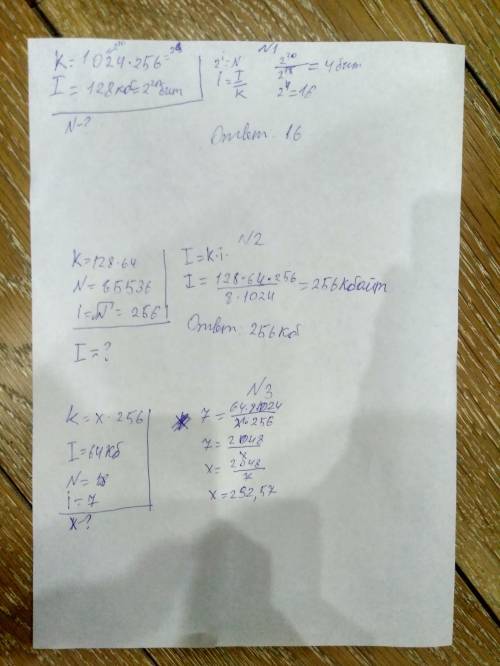 N1
K = 1024·256 = 2¹⁸
I = 128кб = 2²⁰бит
N-?
2ⁱ = N
i = I/K
2²⁰/2¹⁸ = 4 бит
2⁴ = 16
Ответ: 16
N2
K = 128·64
N = 65536
i = √N = 256
I = ?
I = K·i
I = 128·64·256/8·1024 = 256Кбайт
Ответ: 256Кб
N3
K = x·256
I = 64Кб
i = 7
x-?
7 = 64·1024/x·256
7 = 2048/x
x = 2048/7
x = 292,57